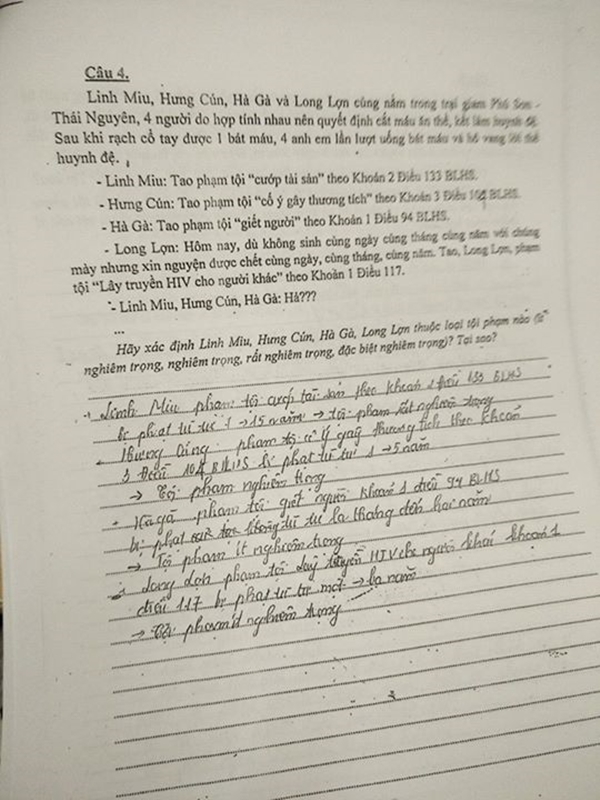 Câu 4.
Linh Miu, Hưng Cún, Hà Gà và Long Lợn cùng nằm trong trại giam Phú Sơn -
Thái Nguyên, 4 người do hợp tính nhau nên quyết định cắt máu ăn thề, kết làm huynh đệ.
Sau khi rạch cổ tay được 1 bát máu, 4 anh em lần lượt uống bát máu và hô vang lời thề
huynh đệ.
- Linh Miu: Tao phạm tội "cướp tài sản" theo Khoản 2 Điều 133 BLHS.
- Hưng Cún: Tao phạm tội "cố ý gây thương tích" theo Khoản 3 Điều 104 BLHS.
- Hà Gà: Tao phạm tội "giết người" theo Khoản 1 Điều 94 BLHS.
- Long Lợn: Hôm nay, dù không sinh cùng ngày cùng tháng cùng năm với chúng
mày nhưng xin nguyện được chết cùng ngày, cùng tháng, cùng năm. Tao, Long Lợn, phạm
tội "Lây truyền HIV cho người khác" theo Khoản 1 Điều 117.
- Linh Miu, Hưng Cún, Hà Gà: Hả???
...
Hãy xác định Linh Miu, Hưng Cún, Hà Gà, Long Lợn thuộc loại tội phạm nào (ít
nghiêm trọng, nghiêm trọng, rất nghiêm trọng, đặc biệt nghiêm trọng)? Tại sao?
Linh Miu phạm tội cướp tài sản theo khoản 2 điều 133 BLHS
bị phạt tù từ → 15 năm → tội phạm rất nghiêm trọng
- Hưng phạm tội cố ý gây thương tích theo khoản
3 Điều 104 BLHS bị phạt tù từ → 5 năm
→ Tội phạm nghiêm trọng
- Hà gà phạm tội giết người khoản 1 điều 94 BLHS
bị phạt tù từ ba tháng đến hai năm
→ Tội phạm ít nghiêm trọng
phạm tội truyền HIV cho người khác khoản 1
điều 117 bị phạt tù từ một → ba năm
→ Tội phạm nghiêm trọng